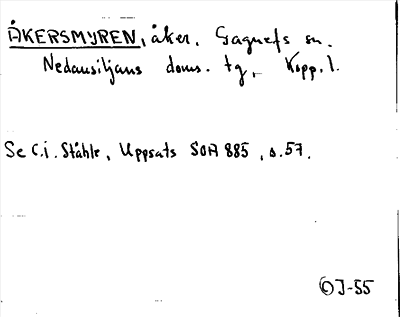 ÅKERSMYREN, åker. Gagnefs sn.
Nedansiljans doms. tg, Kopp. l.
Se C.I. Ståhle, Uppsats SOA 885, s. 57.
OJ-55